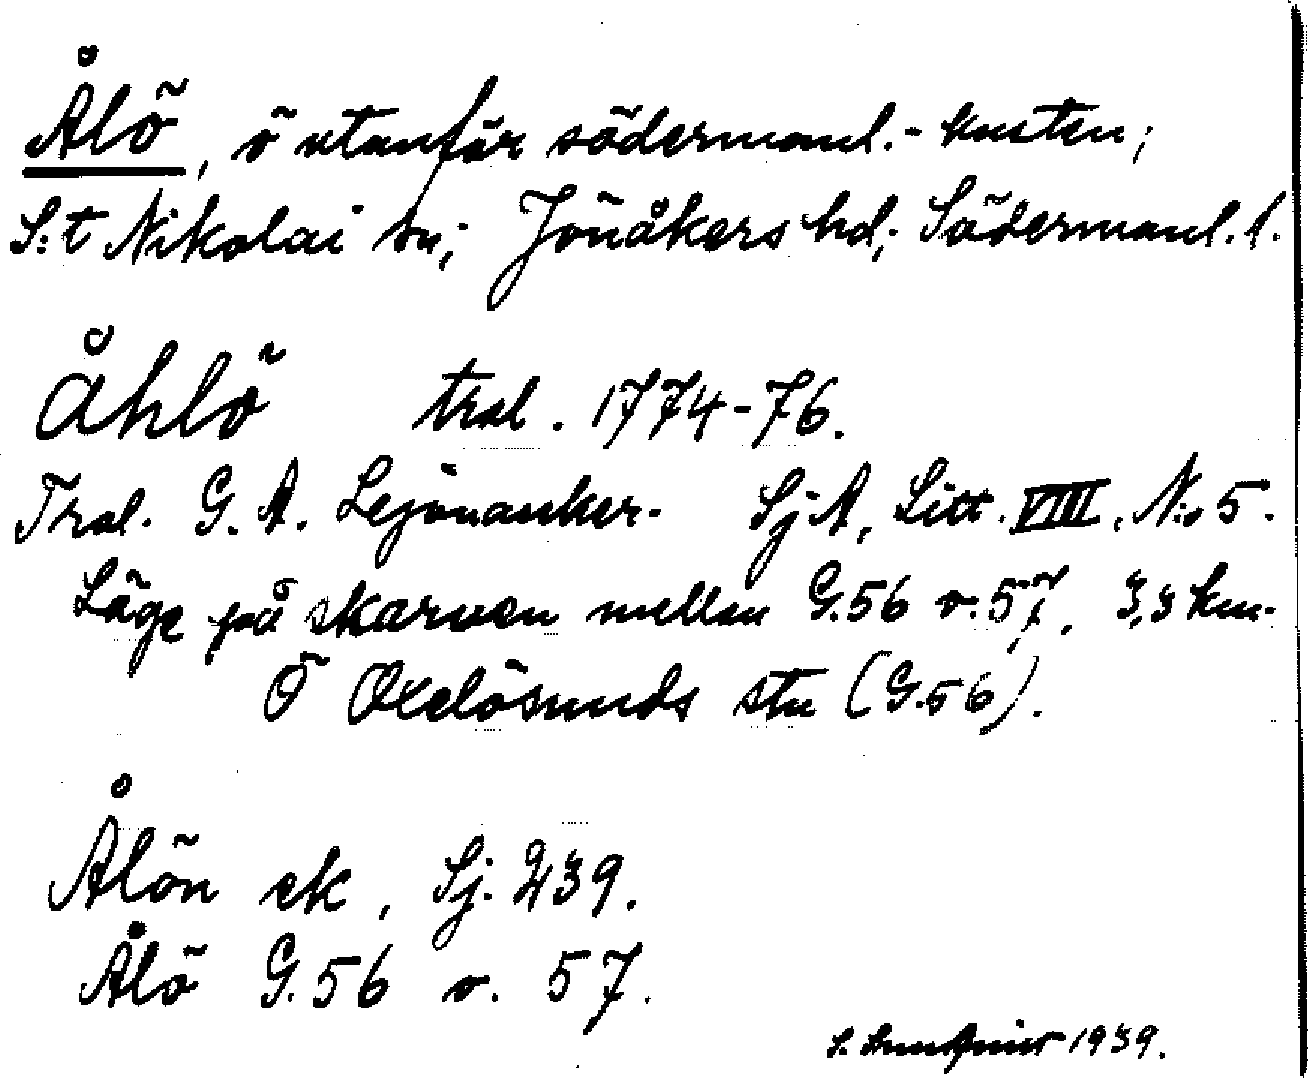 Ålö, ö utanför södermanl.-kusten;
S:t Nikolai sn; Jönåkers hd; Södermanl. l.
Åhlö trol. 1774-76.
Trol. G. A. Lejonanker. SjA, Litt. VIII, No 5.
Läge på skarven mellan G.56 o. 57, 3,3 km.
Ö Oxelösunds stn (G.56).
Ålön ek, Sj. 239.
Ålö G.56 o. 57.
S. 1939.